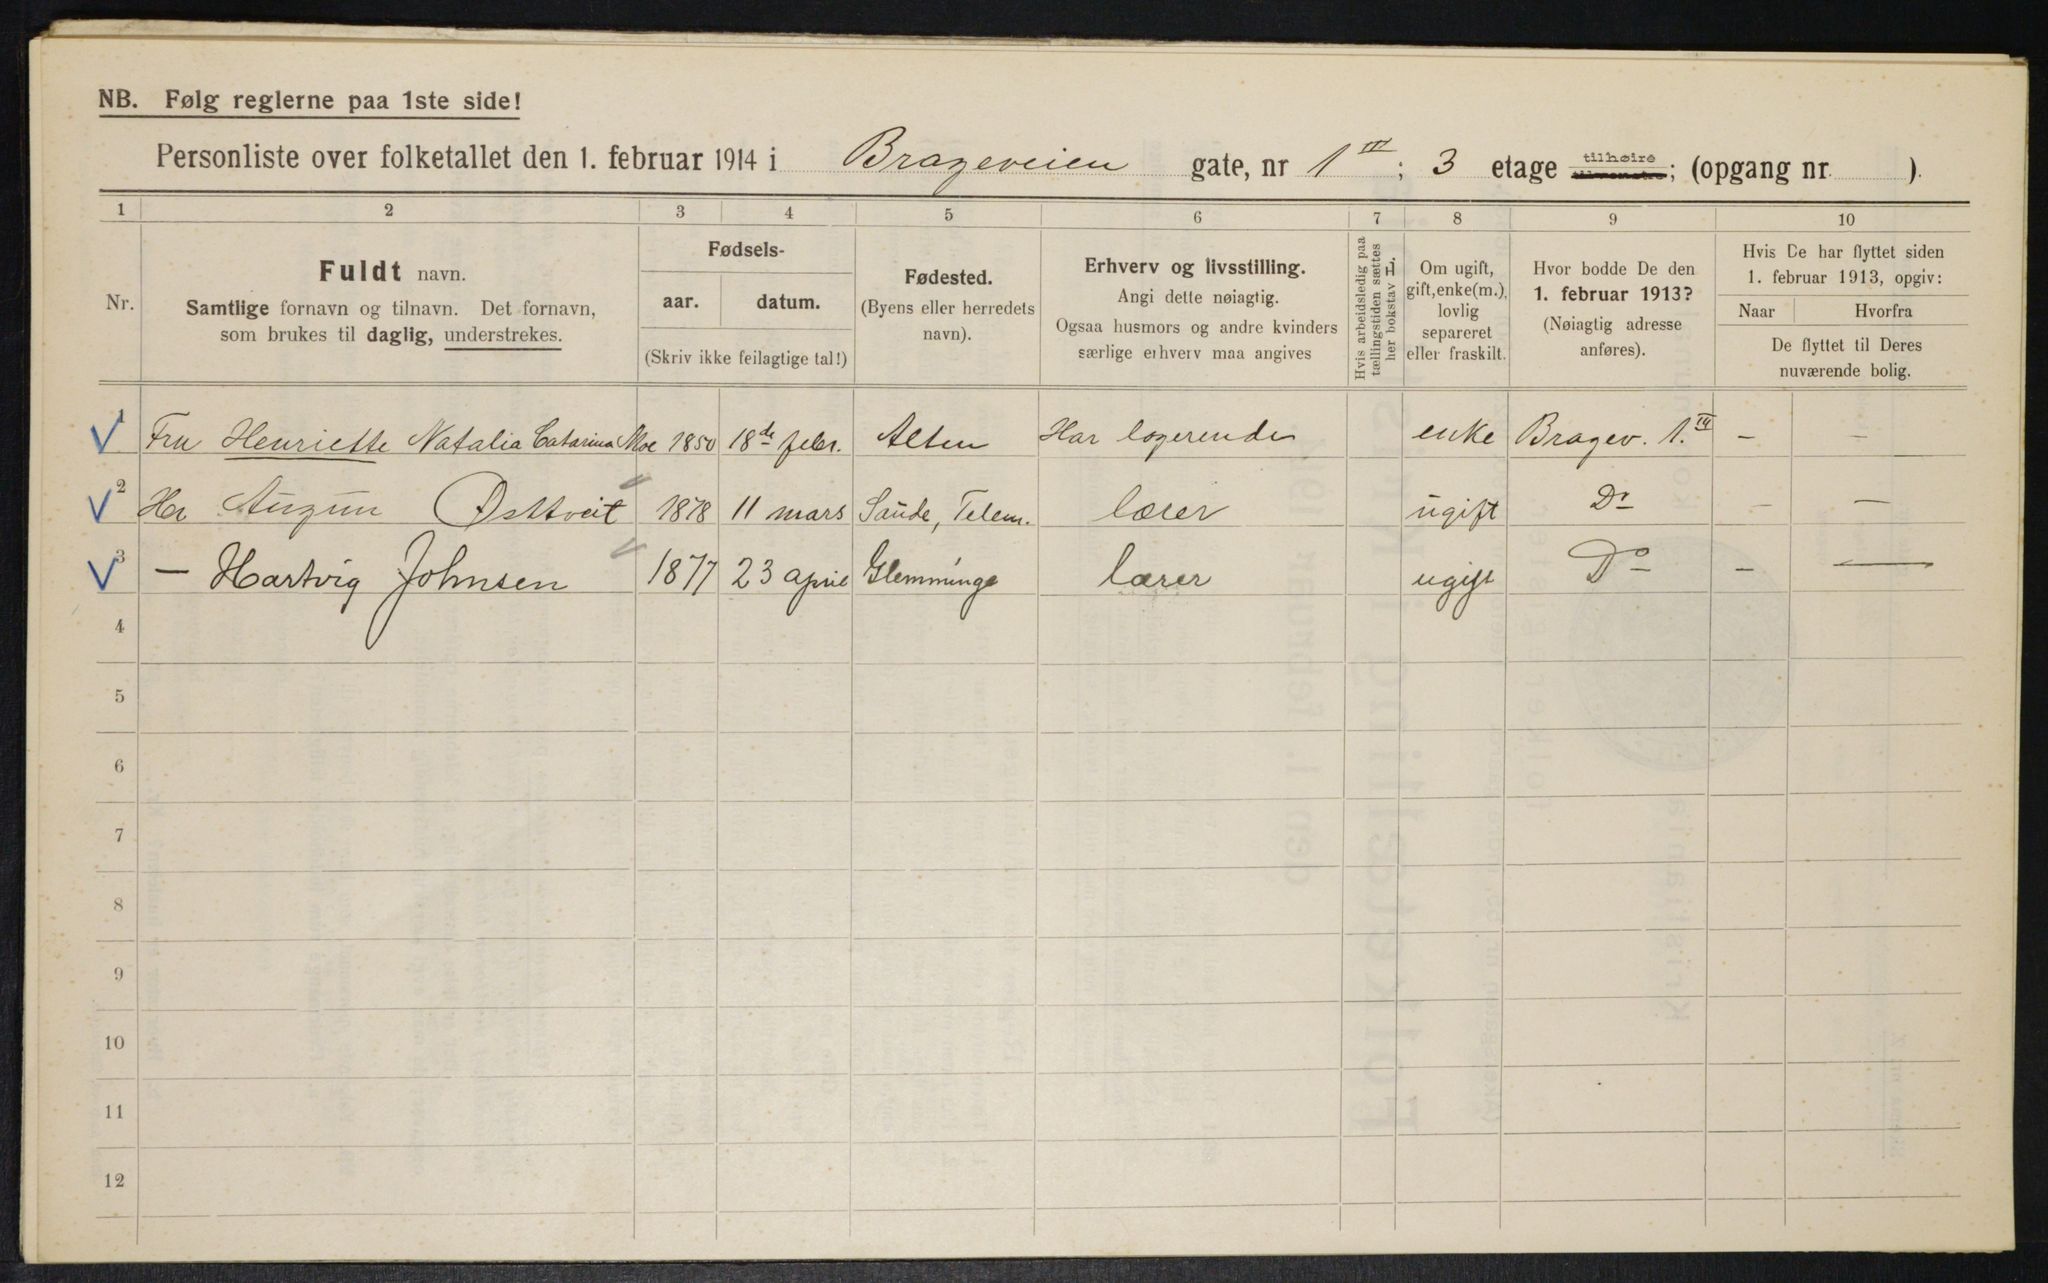 NB. Følg reglerne paa 1ste side!
Personliste over folketallet den 1. februar 1914 i Brageveien gate, nr 1 III; 3 etage tilhøire tilvenstre; (opgang nr ).
1 2 3 4 5 6 7 8 9 10
Nr.
Fuldt navn.
Samtlige fornavn og tilnavn. Det fornavn,
som brukes til daglig, understrekes.
Fødsels-
aar. datum.
(Skriv ikke feilagtige tal!)
Fødested.
(Byens eller herredets
navn).
Erhverv og livsstilling.
Angi dette nøiagtig.
Ogsaa husmors og andre kvinders
særlige erhverv maa angives
Hvis arbeidsledig paa
tællingstiden sættes
her bokstav L.
Om ugift,
gift, enke(m.),
lovlig
separeret
eller fraskilt.
Hvor bodde De den
1. februar 1913?
(Nøiagtig adresse
anføres).
Hvis De har flyttet siden
1. februar 1913, opgiv:
Naar Hvorfra
De flyttet til Deres
nuværende bolig.
1 Fru Henriette Natalia Catarina Moe 1850 18de febr. Alten Har logerende enke Bragev. 1. III – –
2 Hr Augun Østtveit 1878 11 mars Saude, Telem. lærer ugift Do – –
3 – Hartvig Johnsen 1877 23 april Glemminge lærer ugift Do – –
4
5
6
7
8
9
10
11
12